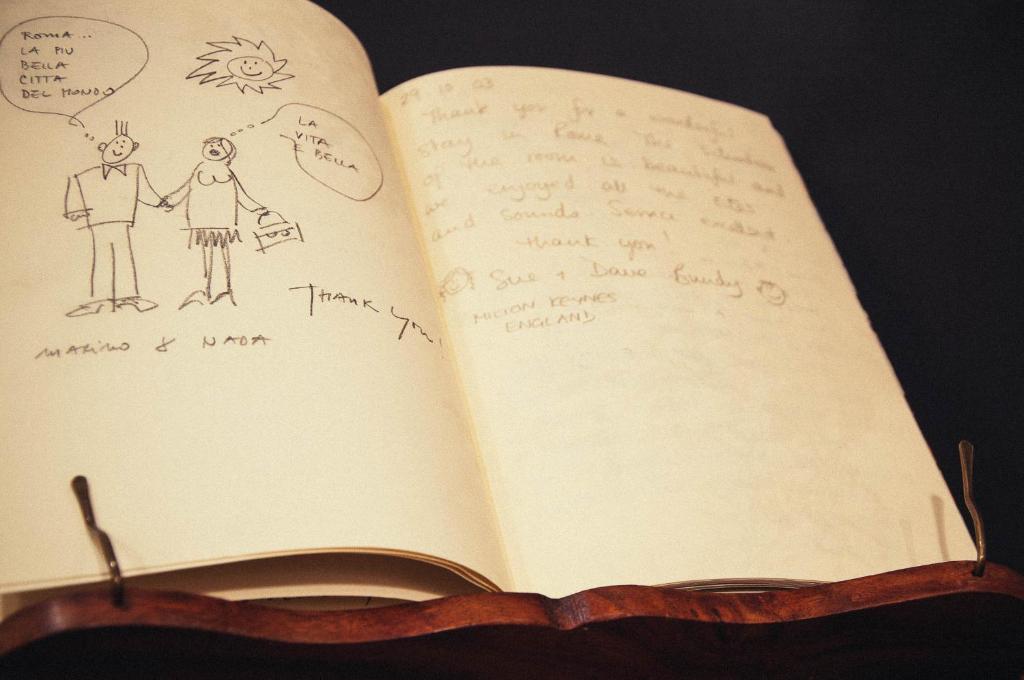 ROMA...
LA PIU
BELLA
CITTA
DEL MONDO
LA
VITA
E BELLA
THANK YOU!
MARINO & NADA
29 10 03
Thank you for a wonderful
stay in Rome The Situation
of the room is beautiful and
we enjoyed all the
and sounds. Service excellent.
Thank you!
Sue + Dave Bundy
MILTON KEYNES
ENGLAND